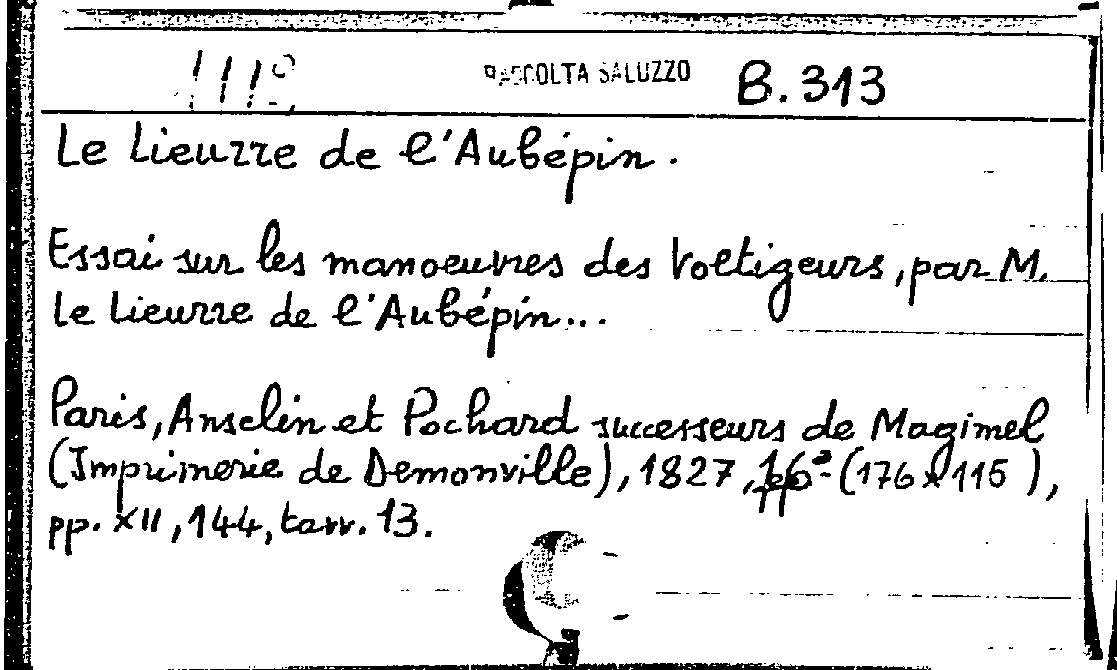 1112 RACCOLTA SALUZZO B.313
Le Lieurre de l'Aubépin.
Essai sur les manoeuvres des Voltigeurs, par M.
Le Lieurre de l'Aubépin...
Paris, Anselin et Pochard successeurs de Magimel
(Imprimerie de Demonville), 1827, 16° (176x115),
pp. XII, 144, tavv. 13.